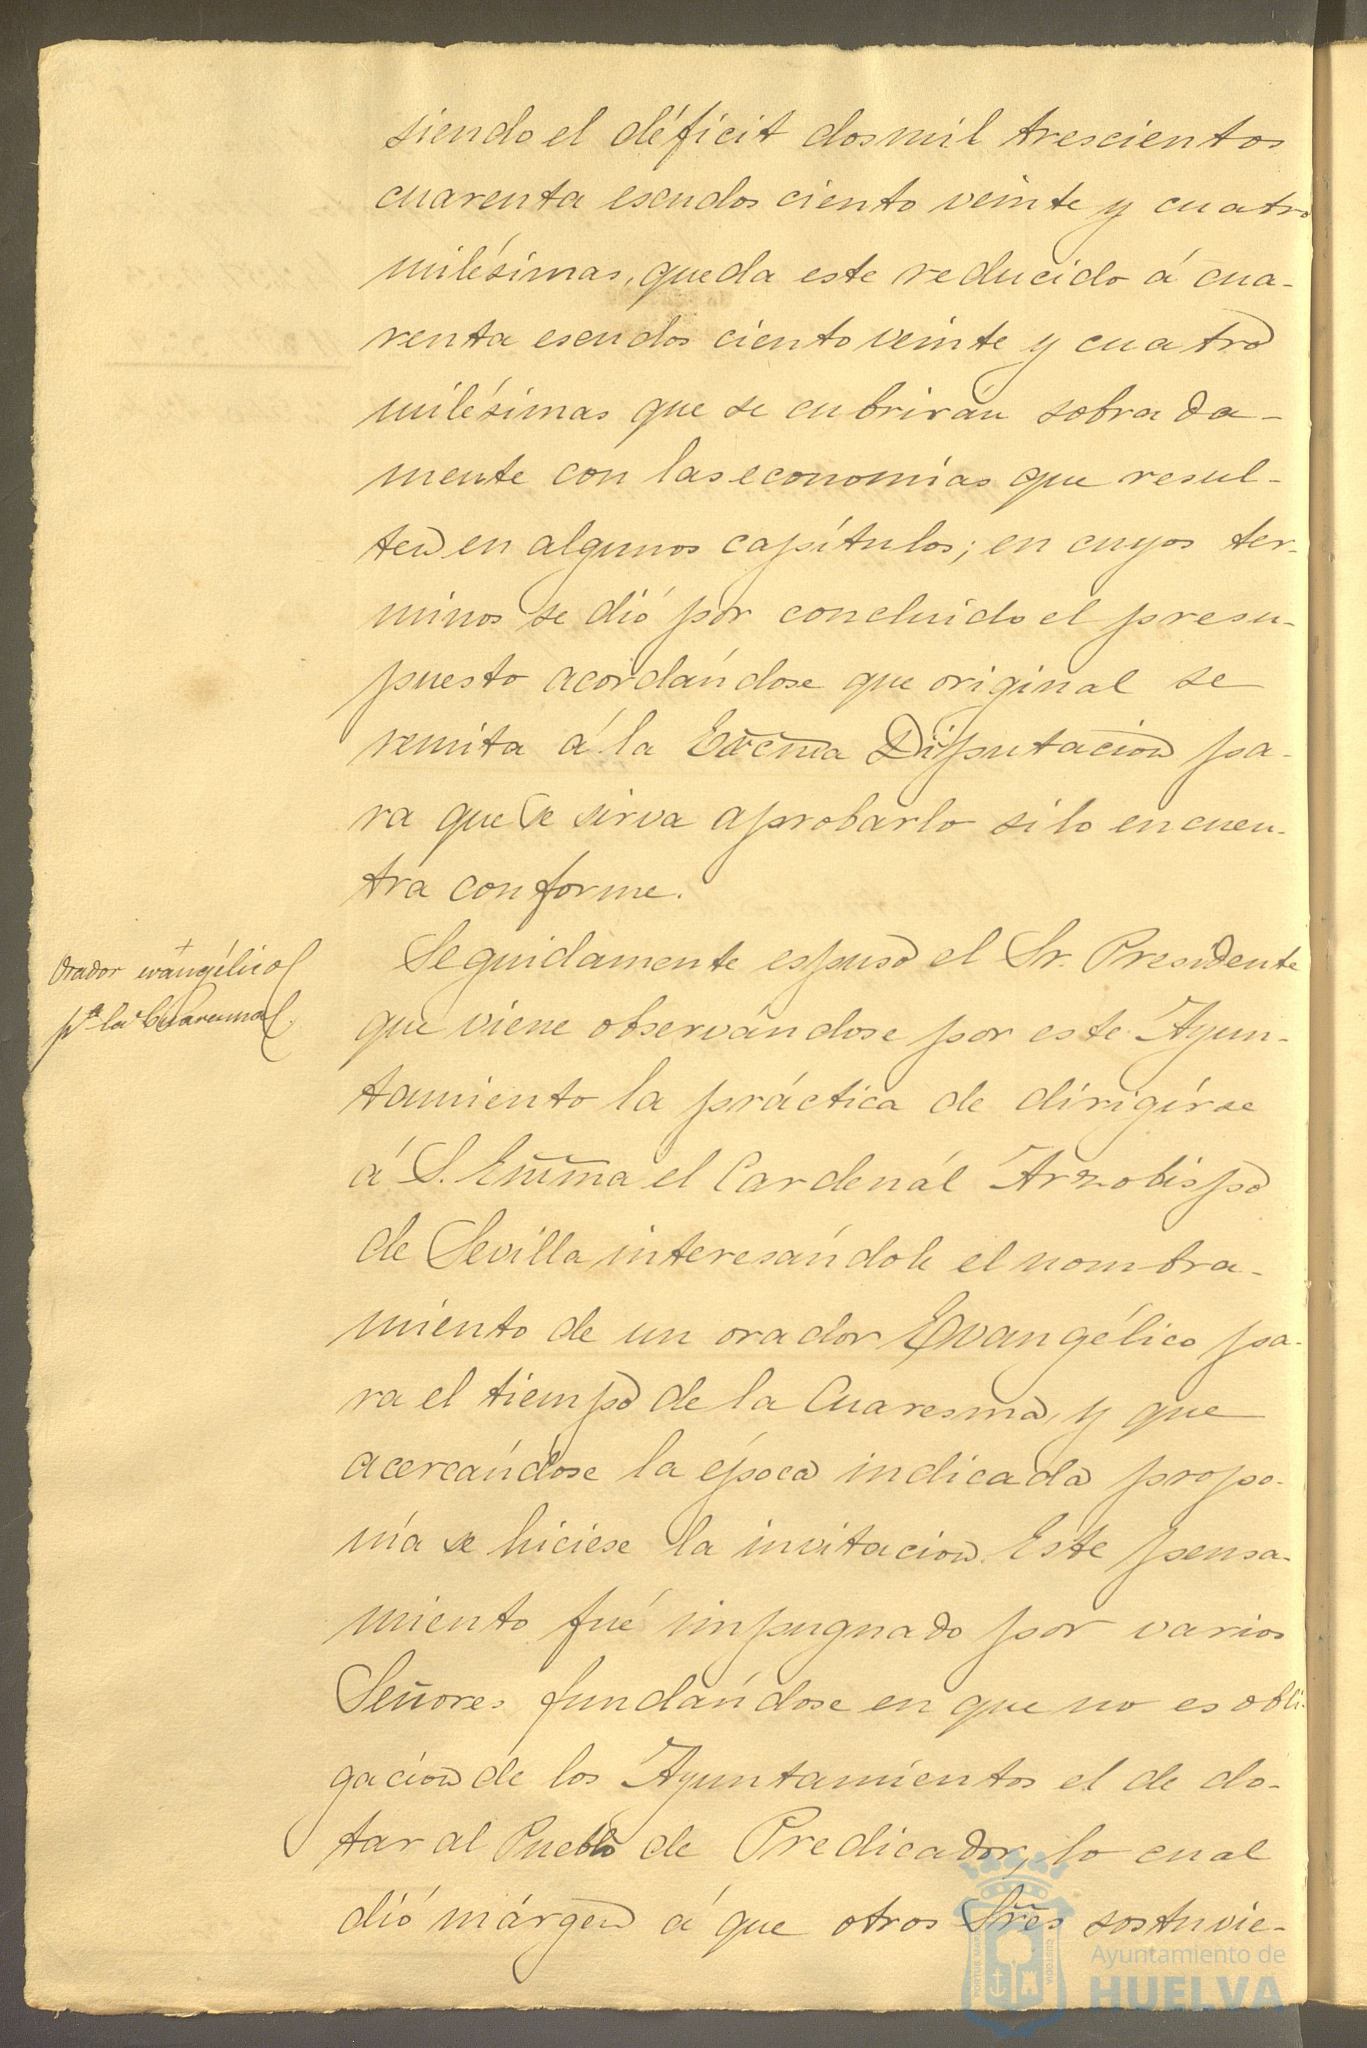 siendo el déficit dosmil trescientos
cuarenta escudos ciento veinte y cuatro
milésimas, queda este reducido á cua-
renta escudos ciento veinte y cuatro
milésimas que se cubrirán sobrada-
mente con las economías que resul-
ten en algunos capítulos; en cuyos ter-
minos se dió por concluido el presu-
puesto acordándose que original se
remita á la Excma Diputacion pa-
ra que se sirva aprobarlo si lo encuen-
tra conforme.
Orador evangélico
pª la Cuaresma
Seguidamente espuso el Sr. Presidente
que viene observándose por este Ayun-
tamiento la práctica de dirigirse
á S. Emma el Cardenál Arzobispo
de Sevilla interesándole el nombra-
miento de un orador Evangélico pa-
ra el tiempo de la Cuaresma, y que
acercándose la época indicada propo-
nía se hiciese la invitacion. Este pensa-
miento fué impugnado por varios
Señores fundándose en que no es obli-
gacion de los Ayuntamientos el de do-
tar al Pueblo de Predicador, lo cual
dió márgen á que otros Sres sostuvie-
Ayuntamiento de
HUELVA